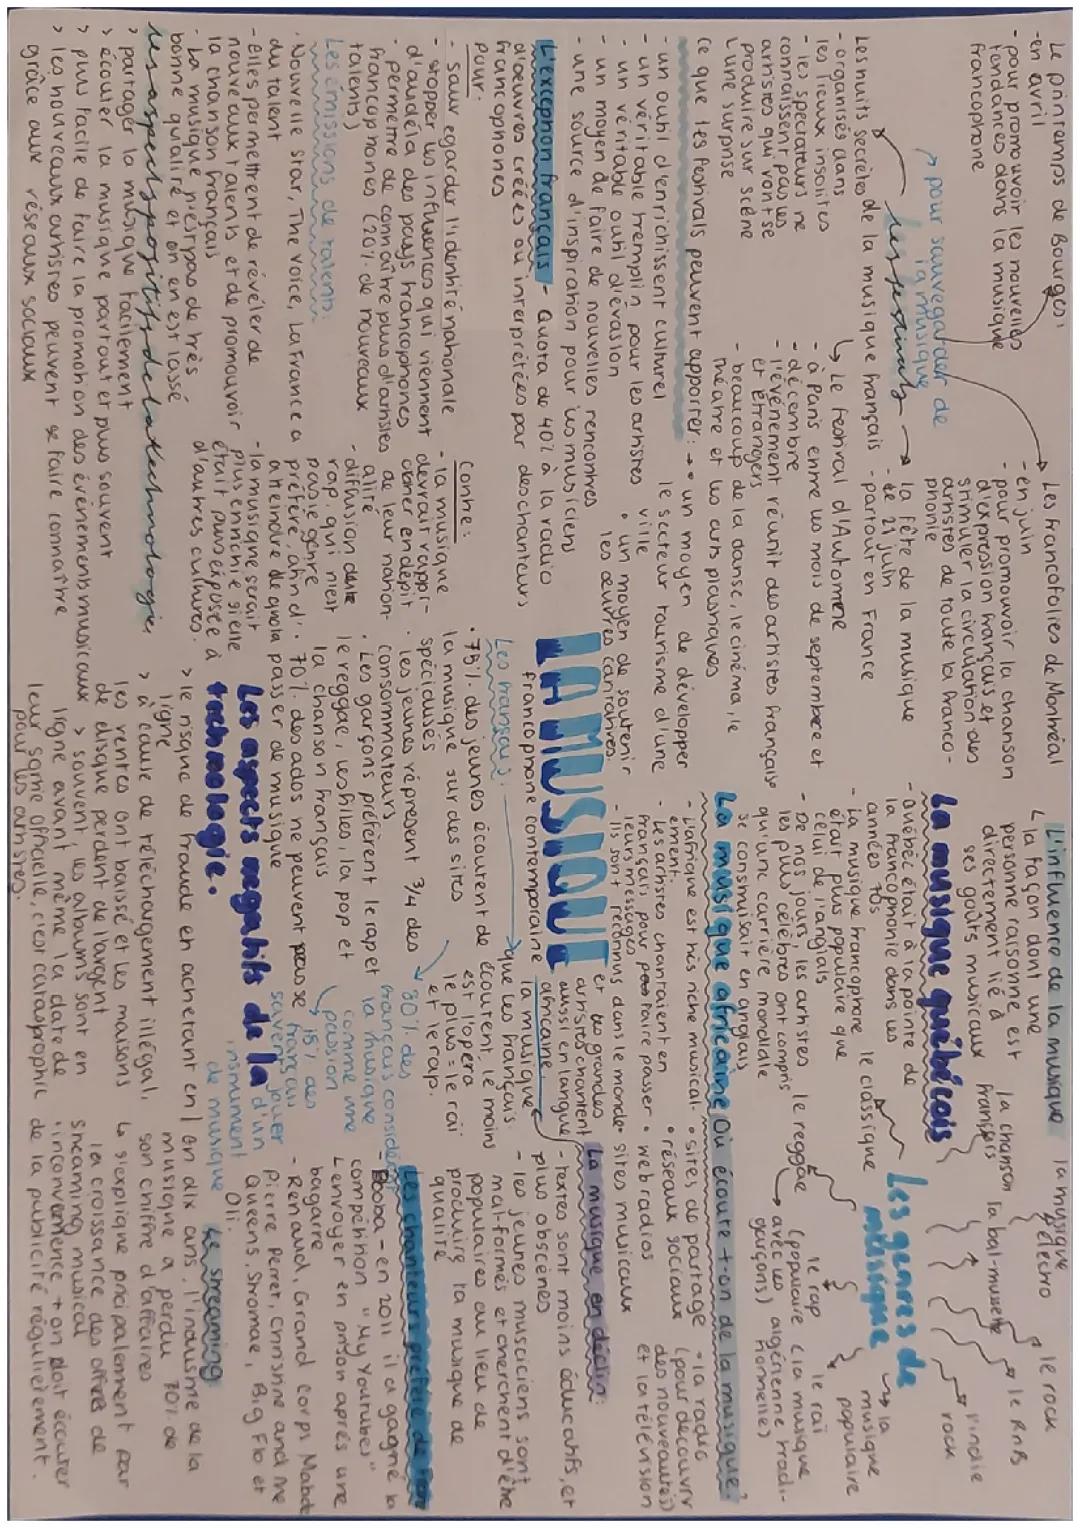 Le printemps de Bourges:
-en avril
-pour promouvoir les nouvelles
tendances dans la musique
francophone
↗ pour sauvegarder de
la musique
Les festivals
Les Francofolies de Montréal
- en juin
- pour promouvoir la chanson
d'expression français et
stimuler la circulation des
artistes de toute la franco-
phonie
Les nuits secrètes de la musique français
- organisés dans
les lieux insolites
- les spectateurs ne
connaissent pas les
artistes qui vont se
produire sur scène
L'une surprise
la fête de la musique
- le 21 juin
- partout en France
Le festival d'Automne
- à Paris entre les mois de septembre et
décembre
- l'événement réunit des artistes français
et étrangers
- beaucoup de la danse, le cinéma, le
théatre et les arts plastiques
Ce que les festivals peuvent apporter:
- un outil d'enrichissent culturel
- un véritable tremplin pour les artistes
- un véritable outil d'évasion
- un moyen de faire de nouvelles rencontres
- une source d'inspiration pour les musiciens
• un moyen de développer
le secteur tourisme d'une
ville
• un moyen de soutenir
les œuvres caritatives.
L'exception français - Quota de 40% à la radio
d'oeuvres créées ou interprétées par des chanteurs
francophones
Pour:
- sauvegarder l'identité nationale
- stopper les influences qui viennent
d'au delà des pays francophones
- permettre de connaître plus d'artistes
francophones (20% de nouveaux
talents)
Contre:
- la musique
devrait rappr-
ocher en dépit
de leur nation-
alité
- diffusion de le
rap, qui n'est
pas le genre
préféré, afin d'
atteindre le quota
- la musique serait
plus enrichie si elle
était plus exposée à
d'autres cultures.
Les émissions de talents:
• Nouvelle star, The Voice, La France a
du talent
- Elles permettrent de révéler de
nouveaux talents et de promouvoir
la chanson français
- La musique n'est pas de très
bonne qualité et on en est lassé
Les aspects positifs de la technologie,
> partager la musique facilement
> écouter la musique partout et plus souvent
> plus facile de faire la promotion des événements musicaux
> les nouveaux artistes peuvent se faire connaître
grâce aux réseaux sociaux
LA MUSIQUE
francophone contemporaine
Les français:
• 75% des jeunes écoutent de
la musique sur des sites
spécialisés
• les jeunes représent 3/4 des
consommateurs
• Les garçons préfèrent le rap et
le reggae, les filles, la pop et
la chanson français
• 70% des ados ne peuvent pas se
passer de musique
que les français
écoutent le moins
est l'opera
le plus = le raï
et le rap.
80% des
français considèrent
la musique
comme une
passion
15% des
français
savent jouer
d'un
instrument
de musique
Les aspects negatifs de la
technologie.
> le risque de fraude en achetant en
ligne
> à cause de téléchargement illégal,
les ventes ont baissé et les maisons
de disque perdent de l'argent
> souvent, les albums sont en
ligne avant même la date de
leur sortie officielle, c'est catastrophic
pour les artistes.
L'influence de la musique
↳ la façon dont une
personne raisonne est
directement lié à
ses goûts musicaux
La musique québécois
- Québéc était à la pointe de
la francophonie dans les
années 70s
- La musique francophone
était plus populaire que
celui de l'anglais
- De nos jours, les artistes
les plus célèbres ont compris
qu'une carrière mondiale
se construisait en anglais
La musique africaine
- L'afrique est très riche musical-
ement.
- Les artistes chantaient en
français pour faire passer
leurs messages
- Ils sont reconnus dans le monde
et les grandes
artistes chantent
aussi en langue
africaine.
Les genres de
musique
la musique
électro
le rock
le RnB
l'indie
rock
la chanson
français
la bal-musette
le classique
le reggae
le rap
le raï
(populaire (la musique
algérienne tradi-
tionnelle)
avec les
garçons)
la
musique
populaire
Où écoute-t-on de la musique?
• sites de partage
• réseaux sociaux
• web radios
• sites musicaux
• la radio
(pour découvrir
des nouveautés)
et la télévision
La musique en déclin:
- textes sont moins éducatifs, et
plus obscènes
- les jeunes musiciens sont
mal-formés et cherchent d'être
populaires au lieu de
produire la musique de
qualité
la musique
Les chanteurs préféré de
- Booba - en 2011 il a gagné la
compétition "My Youtube"
L envoyer en prison après une
bagarre
- Renaud, Grand Corps Malade
Pierre Perret, Christine and the
Queens, Stromae, Big Flo et
Oli.
Le streaming
en dix ans, l'industrie de la
musique a perdu 70% de
son chiffre d'affaires
↳ s'explique principalement par
la croissance des offres de
streaming musical
• inconvenience = on doit écouter
de la publicité régulièrement.